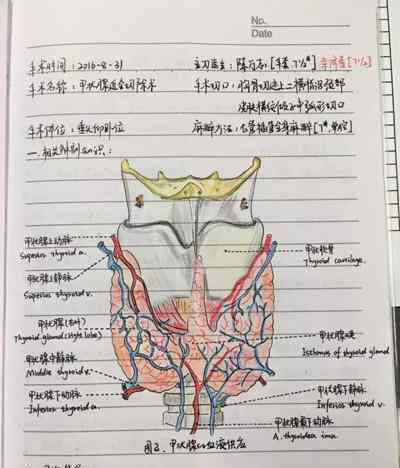 No.
Date
手术时间：2016-8-31 主刀医生：陈 [手套 7½#] [7½]
手术名称：甲状腺近全切除术 手术切口：胸骨切迹上二横指沿颈部
皮肤横纹做弧形切口
手术体位：垂头仰卧位 麻醉方法：气管插管全身麻醉 [7#单腔]
一.相关解剖知识：
甲状腺上动脉
Superior thyroid a.
甲状软骨
Thyroid cartilage.
甲状腺上静脉
Superior thyroid v.
甲状腺(右叶)
Thyroid gland (right lobe)
甲状腺峡
Isthmus of thyroid gland
甲状腺中静脉
Middle thyroid v.
甲状腺下动脉
Inferior thyroid a.
甲状腺下静脉
Inferior thyroid v.
甲状腺最下动脉
A. thyroidea ima
图2.甲状腺血液供应